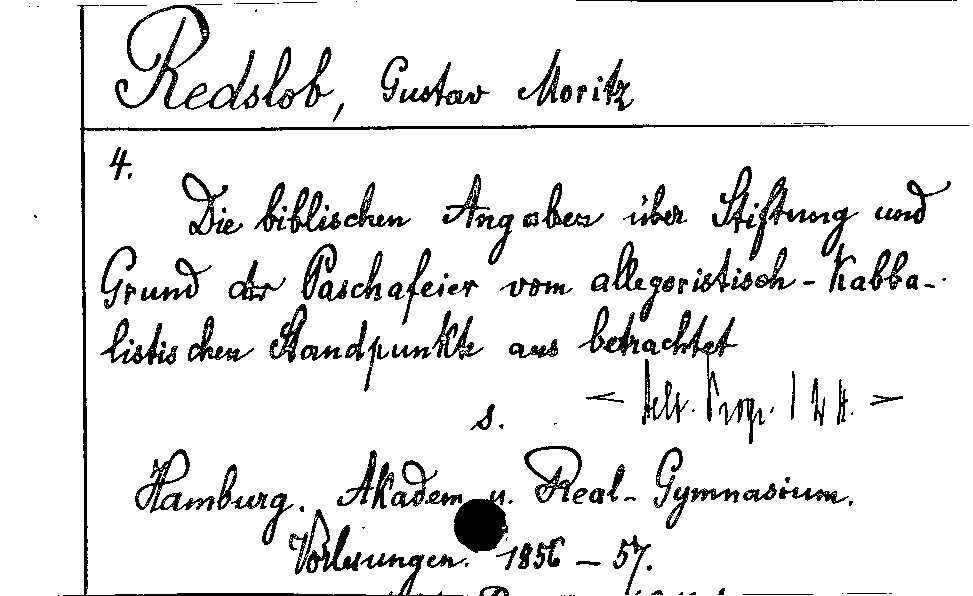 Redslob, Gustav Moritz
4.
Die biblischen Angaben über Stiftung und
Grund der Paschafeier vom allegoristisch-Kabba-
listischen Standpunkte aus betrachtet
s.
Hamburg. Akadem. u. Real-Gymnasium.
Vorlesungen. 1856 – 57.